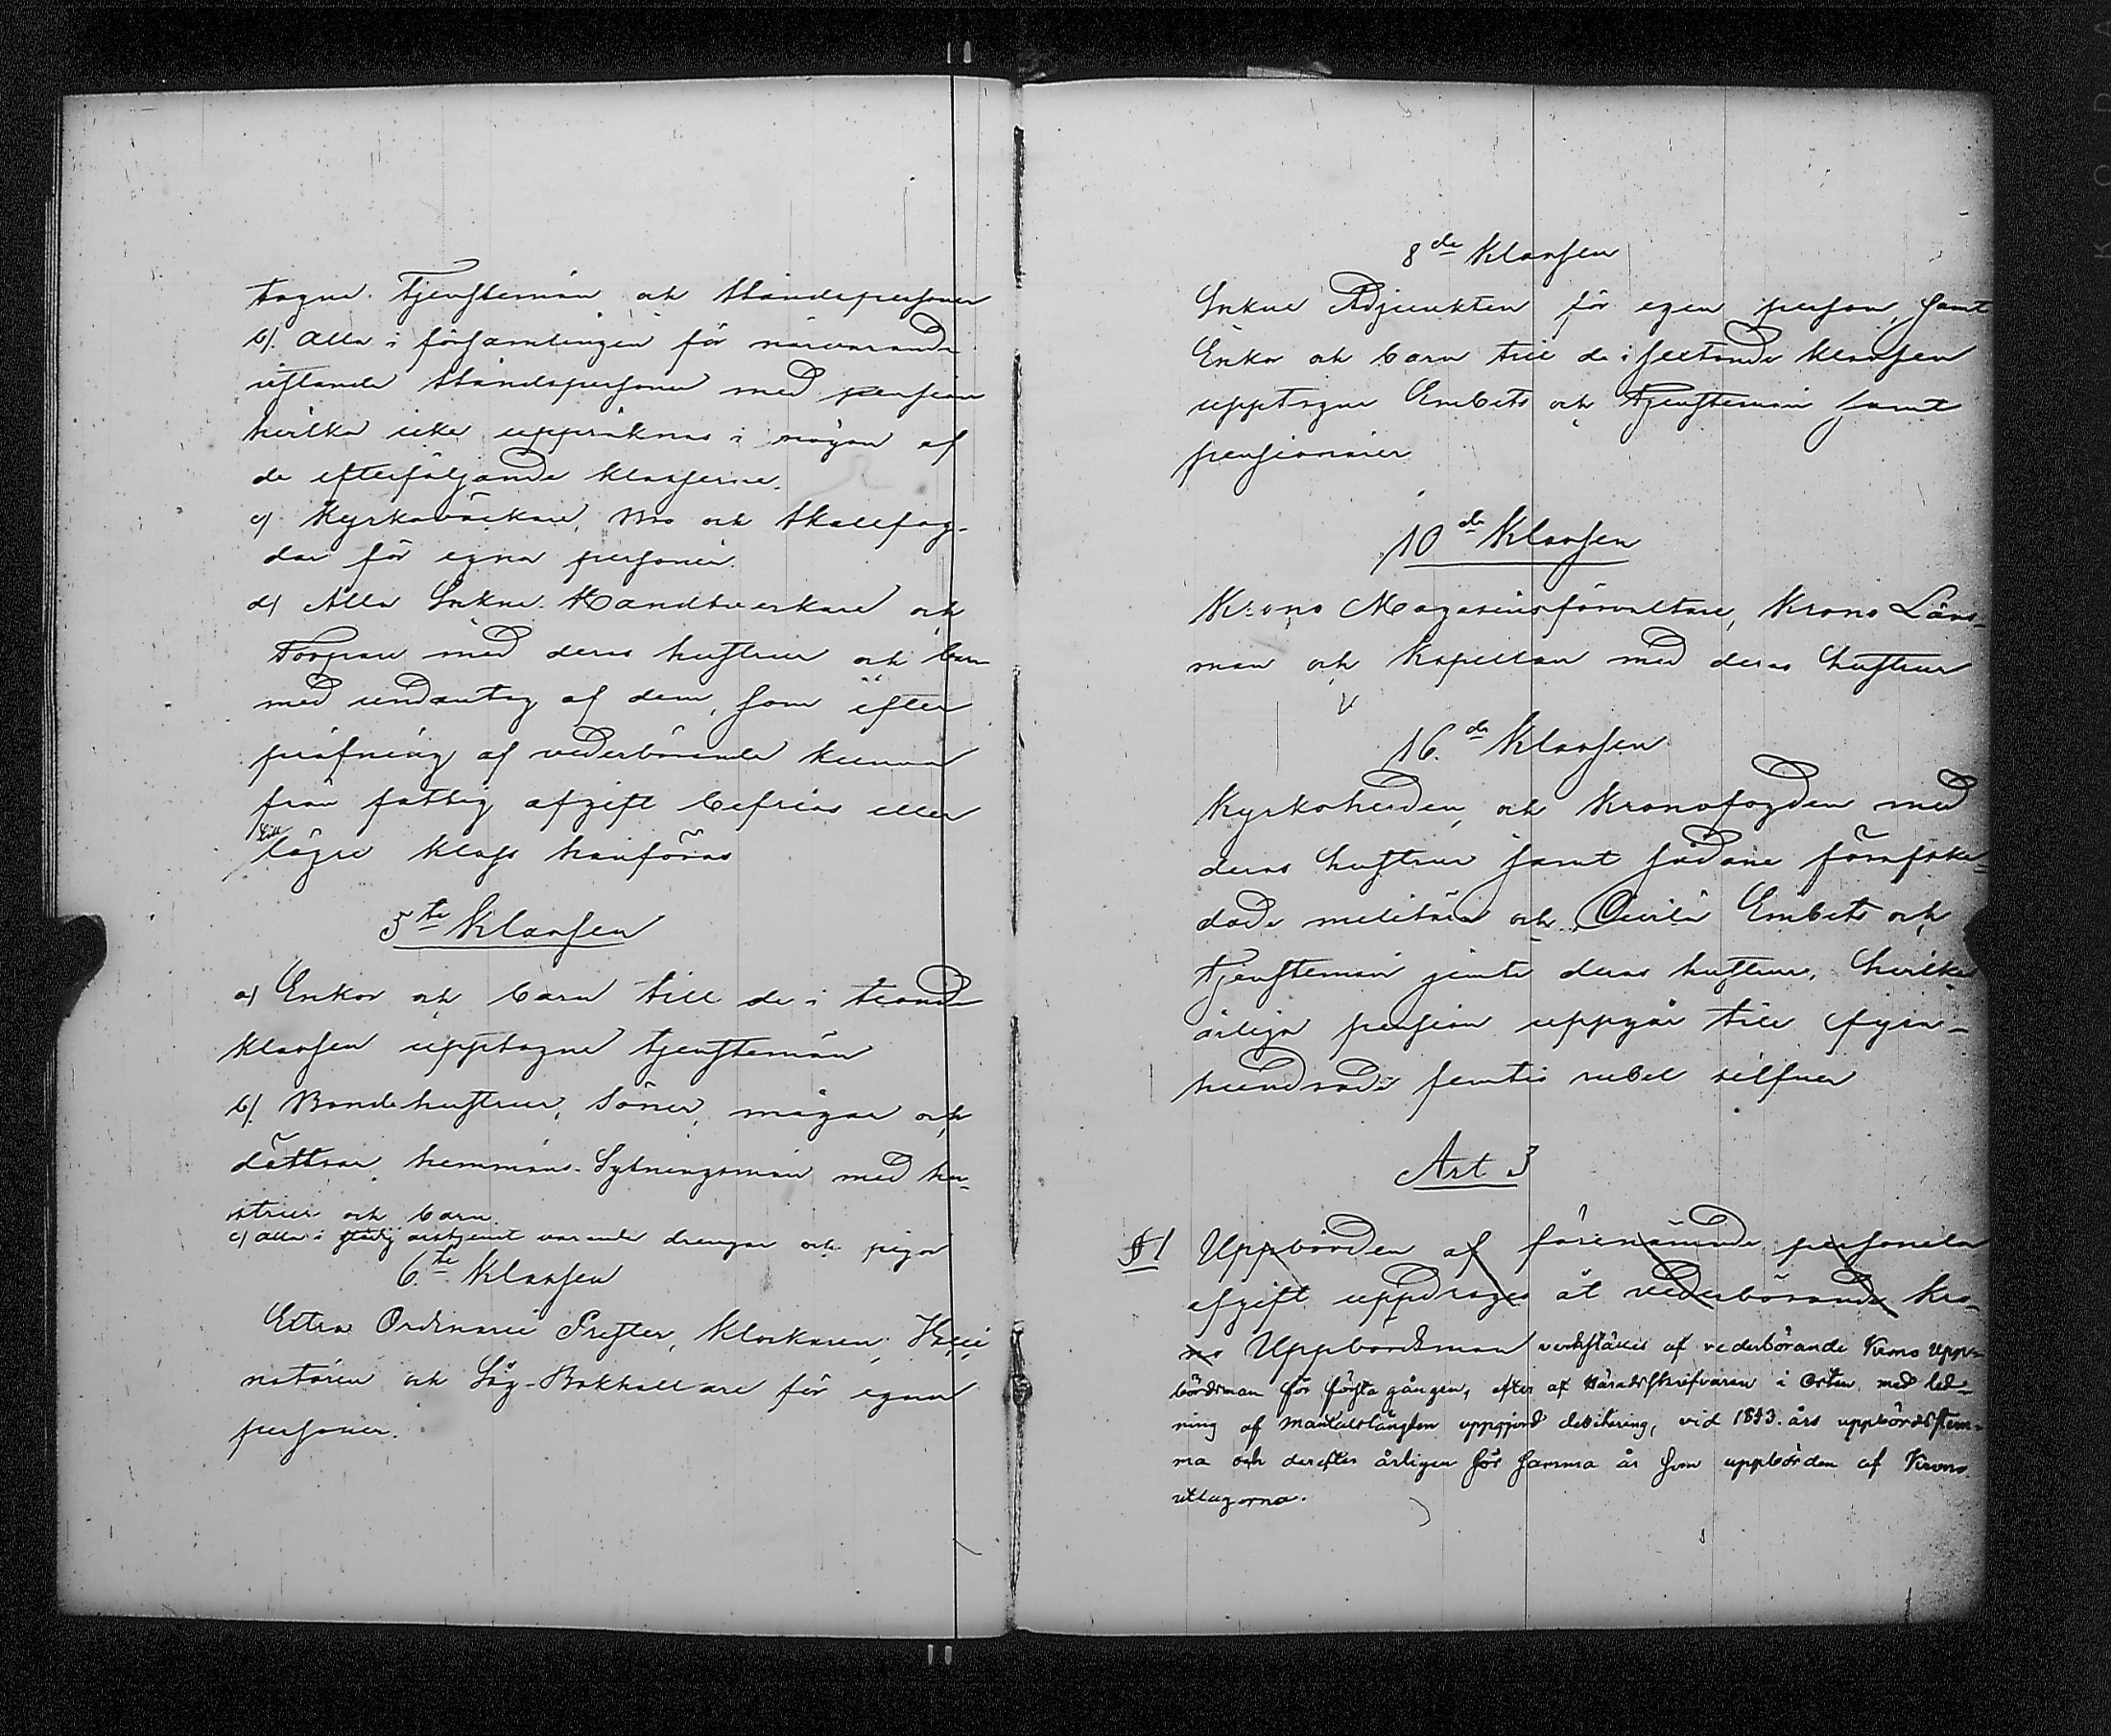 tagne Tjenstemän och Ståndspersoner
b). Alla i församlingen för närvarande
vistande Ståndspersoner med pension
hvilka icke uppräknas i någon af
de efterföljande klasserne.
c) Kyrkoväcktare, Mo och Skallfog-
dar för egna personer.
d) Alla Sockne Handtverkare och
Torpare med deras hustrur och barn
med undantag af dem, som efter
pröfning af vederbörande kunna
från fattig afgift befrias eller
till lägre klass hänföras
5te Klassen
a) Enkor och barn till de i tionde
klassen upptagne tjenstemän
b). Bondehustrur, Söner, mågar och
döttrar, hemmans Sytningsmän med hu-
strur och barn.
c) Alla i städ årstjenst varande drengar och pigor
6te Klassen
Extra Ordinarie Prester, Klockaren,
notarien och Såg-Bokhållare för egna
personer.
8de Klassen
Sockne Adjunkten för egen person, samt
Enkor och barn till de i sextonde klassen
upptagne Embets och Tjenstemän samt
pensionärer
10de Klassen
Krono Magasinsförvaltare, Krono Läns-
män och Kapellan med deras hustrur
16de Klassen
Kyrkoherden, och Kronofogden med
deras hustrur samt sådane förafske-
dade militära och Civila Embets och
tjenstemän jemte deras hustrur, hvilkas
årliga pension uppgår till fyra-
hundrade femtio rubel silfver
Art 3
§ 1 Uppbörden af förenämnde personela
afgift uppdrages åt vederbörande Kro-
no Uppbördsman verkställes af vederbörande Krono Upp-
bördsman för första gången, efter af Häradsskrifvaren i Orten med led-
ning af mantalslängden uppgjord debitering, vid 1893 års uppbördsstäm-
ma och derefter årligen för samma år som uppbörden af Krono
utlagorna.